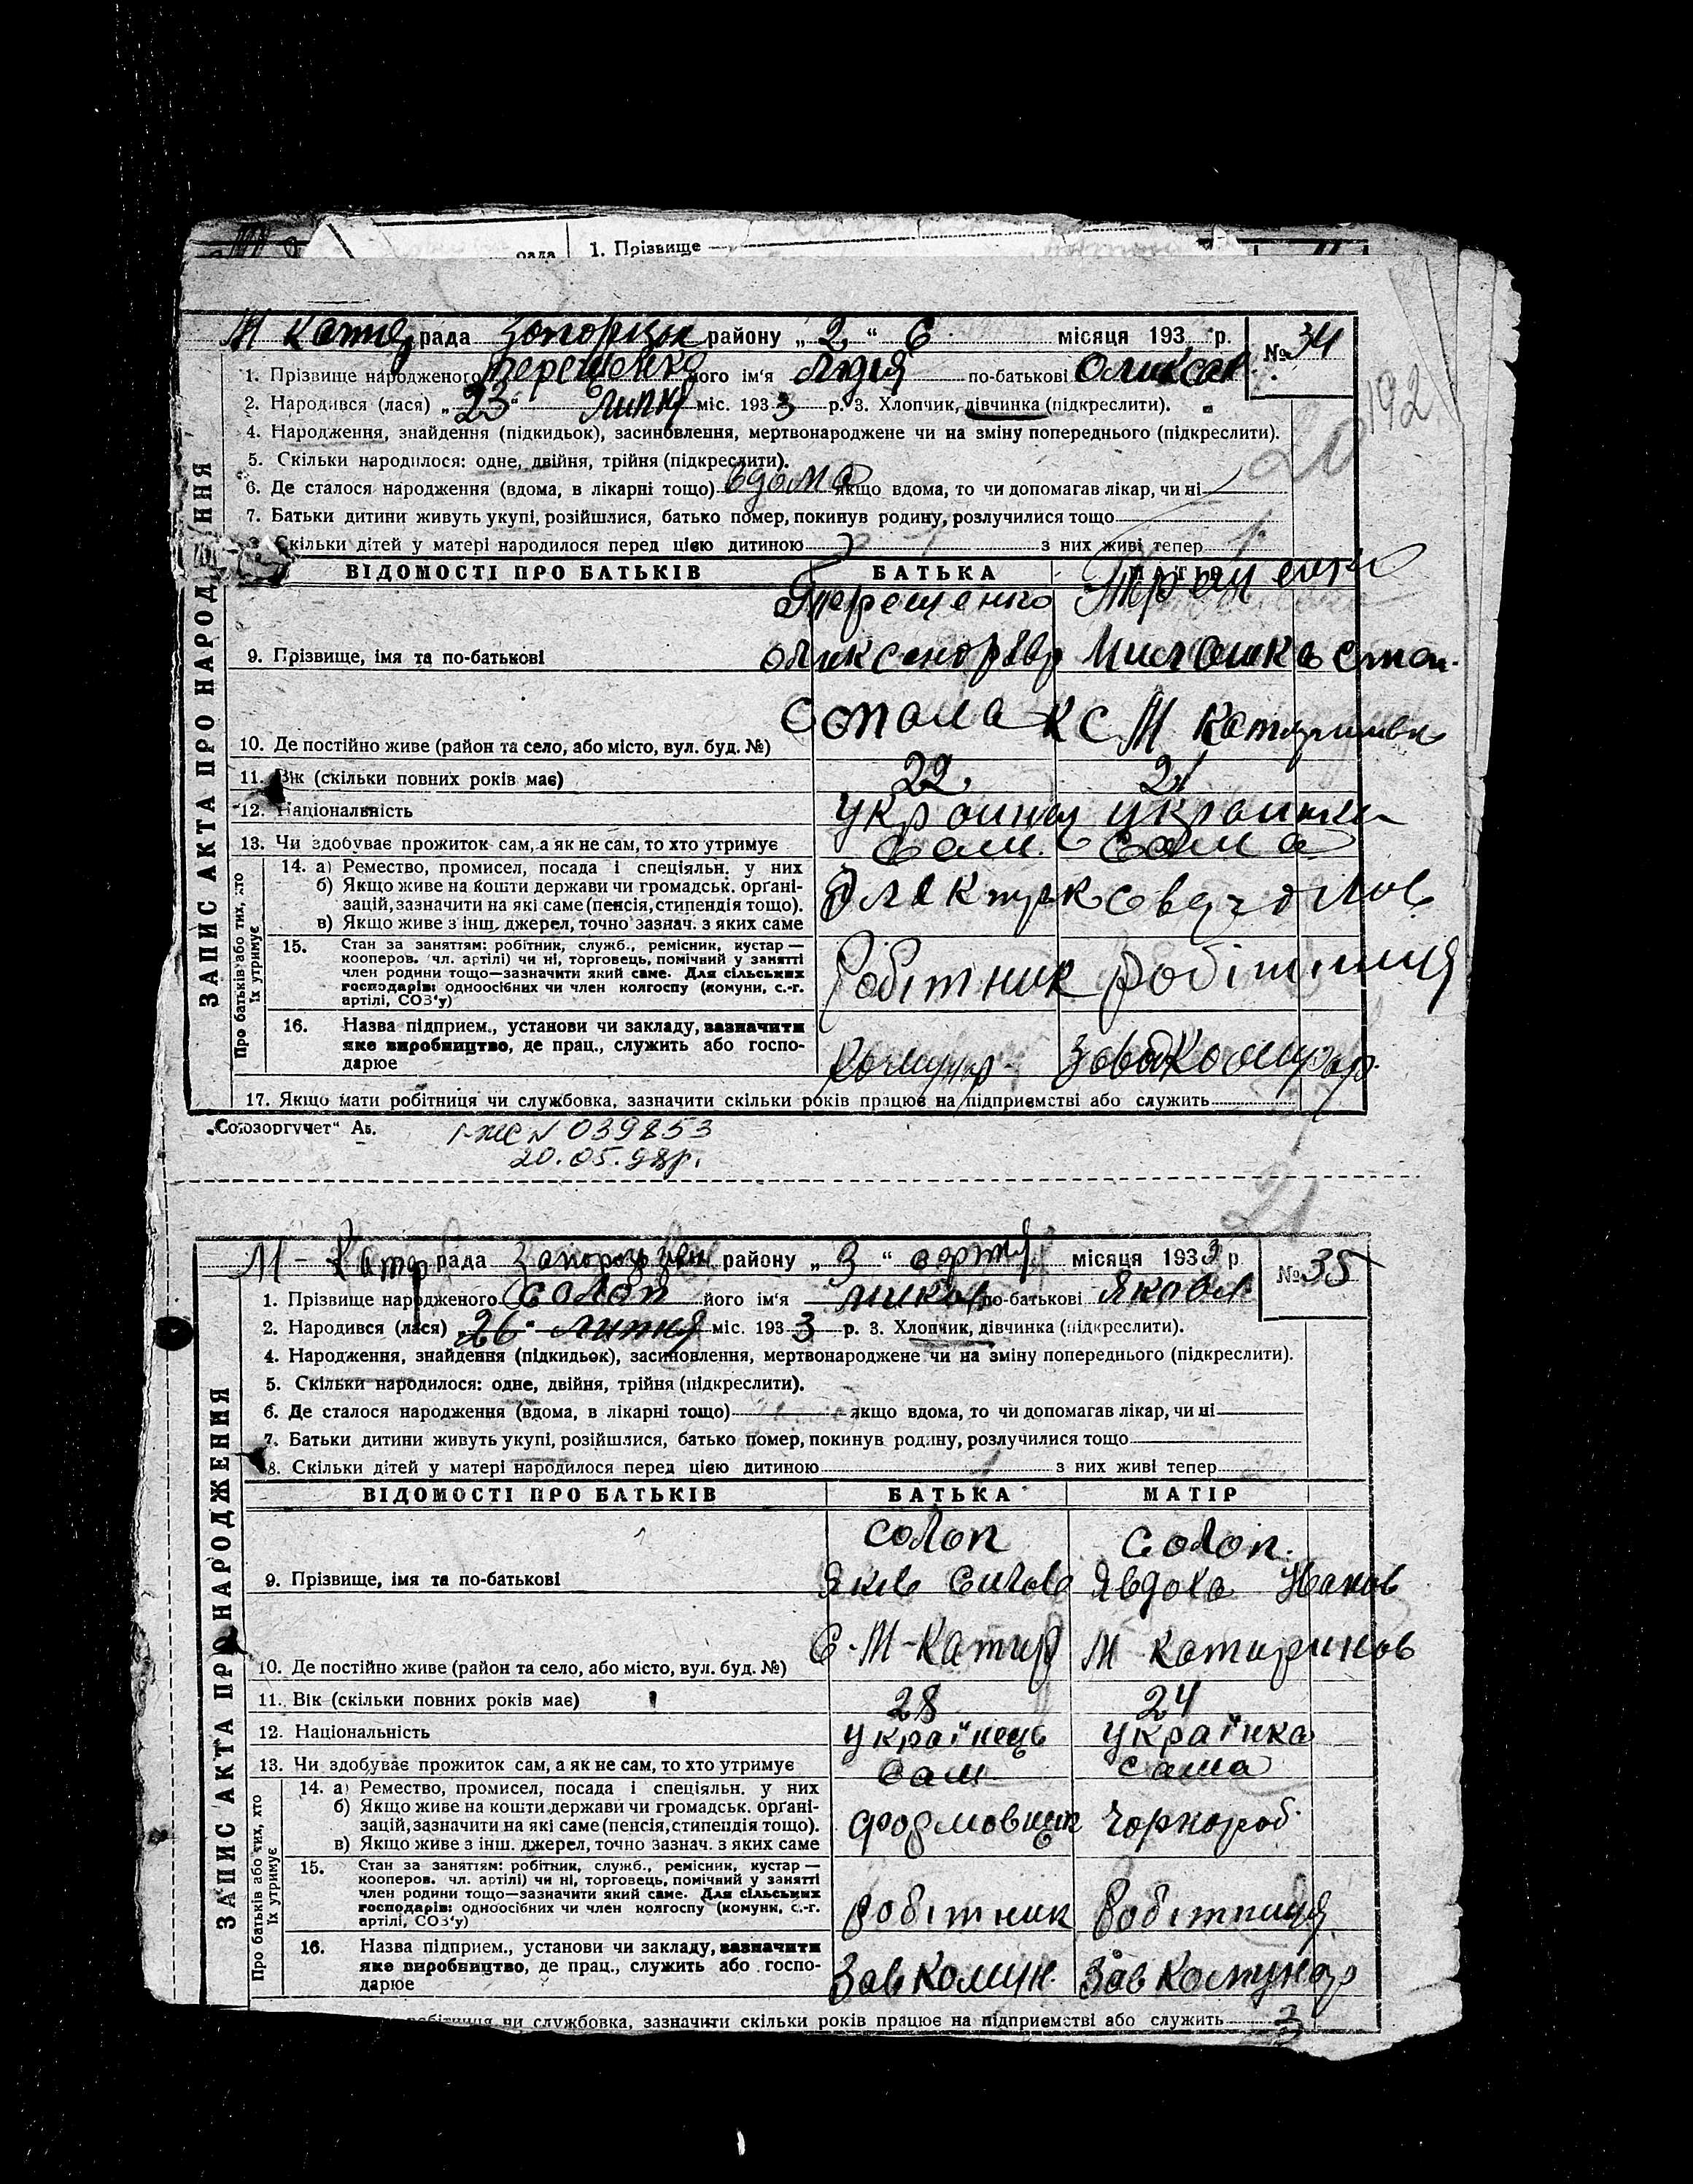 рада 1. Прізвище
М Катер рада Запорізьк району „ 2 “ 6 місяця 193 р. № 34
1. Прізвище народженого Терещенко його ім'я Лідія по-батькові Олексан
2. Народився (лася) „ 23 “ Липня міс. 193 3 р. 3. Хлопчик, дівчинка (підкреслити).
192
4. Народження, знайдення (підкидьок), засиновлення, мертвонароджене чи на зміну попереднього (підкреслити).
20
5. Скільки народилося: одне, двійня, трійня (підкреслити).
6. Де сталося народження (вдома, в лікарні тощо) вдома якщо вдома, то чи допомагав лікар, чи ні
7. Батьки дитини живуть укупі, розійшлися, батько помер, покинув родину, розлучилися тощо
Скільки дітей у матері народилося перед цією дитиною 1 з них живі тепер 1
ЗАПИС АКТА ПРО НАРОДЖЕННЯ
ВІДОМОСТІ ПРО БАТЬКІВ БАТЬКА МАТІР
Терещенко
9. Прізвище, імя та по-батькові
10. Де постійно живе (район та село, або місто, вул. буд. №) С М Катеринивк
11. Вік (скільки повних років має) 22 21
12. Національність украинец украинка
13. Чи здобуває прожиток сам, а як не сам, то хто утримує Сам Сама
Про батьків або тих, хто їх утримує
14. а) Ремество, промисел, посада і спеціяльн. у них
б) Якщо живе на кошти держави чи громадськ. органі-
зацій, зазначити на які саме (пенсія, стипендія тощо).
в) Якщо живе з інш. джерел, точно зазнач. з яких саме
15. Стан за заняттям: робітник, служб., ремісник, кустар —
кооперов. чл. артілі) чи ні, торговець, помічний у занятті
член родини тощо—зазначити який саме. Для сільських
господарів: одноосібних чи член колгоспу (комуни, с.-г.
артілі, СОЗ'у)
Робітник робітниця
16. Назва підприєм., установи чи закладу, зазначити
яке виробництво, де прац., служить або госпо-
дарює
Комунар Завод Комунар.
17. Якщо мати робітниця чи службовка, зазначити скільки років працює на підприємстві або служить
„Союзоргучет“ Ав.
I-ЖС № 039853
20.05.98р.
21
М - Катер рада Запорізьк району „ 3 “ серпня місяця 193 3 р. № 35
1. Прізвище народженого Солоп його ім'я Микол по-батькові Яковл
2. Народився (лася) „ 26 “ липня міс. 193 3 р. 3. Хлопчик, дівчинка (підкреслити).
4. Народження, знайдення (підкидьок), засиновлення, мертвонароджене чи на зміну попереднього (підкреслити).
5. Скільки народилося: одне, двійня, трійня (підкреслити).
6. Де сталося народження (вдома, в лікарні тощо) якщо вдома, то чи допомагав лікар, чи ні
7. Батьки дитини живуть укупі, розійшлися, батько помер, покинув родину, розлучилися тощо
8. Скільки дітей у матері народилося перед цією дитиною 1 з них живі тепер
ЗАПИС АКТА ПРО НАРОДЖЕННЯ
ВІДОМОСТІ ПРО БАТЬКІВ БАТЬКА МАТІР
Солоп Солоп.
9. Прізвище, імя та по-батькові Яків Явдоха Іванов
10. Де постійно живе (район та село, або місто, вул. буд. №) С-М-Катер М Катеринов
11. Вік (скільки повних років має) 28 24
12. Національність українець українка
13. Чи здобуває прожиток сам, а як не сам, то хто утримує Сам Сама
Про батьків або тих, хто їх утримує
14. а) Ремество, промисел, посада і спеціяльн. у них
б) Якщо живе на кошти держави чи громадськ. органі-
зацій, зазначити на які саме (пенсія, стипендія тощо).
в) Якщо живе з інш. джерел, точно зазнач. з яких саме
формовщик чорнороб
15. Стан за заняттям: робітник, служб., ремісник, кустар —
кооперов. чл. артілі) чи ні, торговець, помічний у занятті
член родини тощо—зазначити який саме. Для сільських
господарів: одноосібних чи член колгоспу (комуни, с.-г.
артілі, СОЗ'у)
Робітник Робітниця
16. Назва підприєм., установи чи закладу, зазначити
яке виробництво, де прац., служить або госпо-
дарює
Зав Комун. Зав Комунар
робітниця чи службовка, зазначити скільки років працює на підприємстві або служить 3